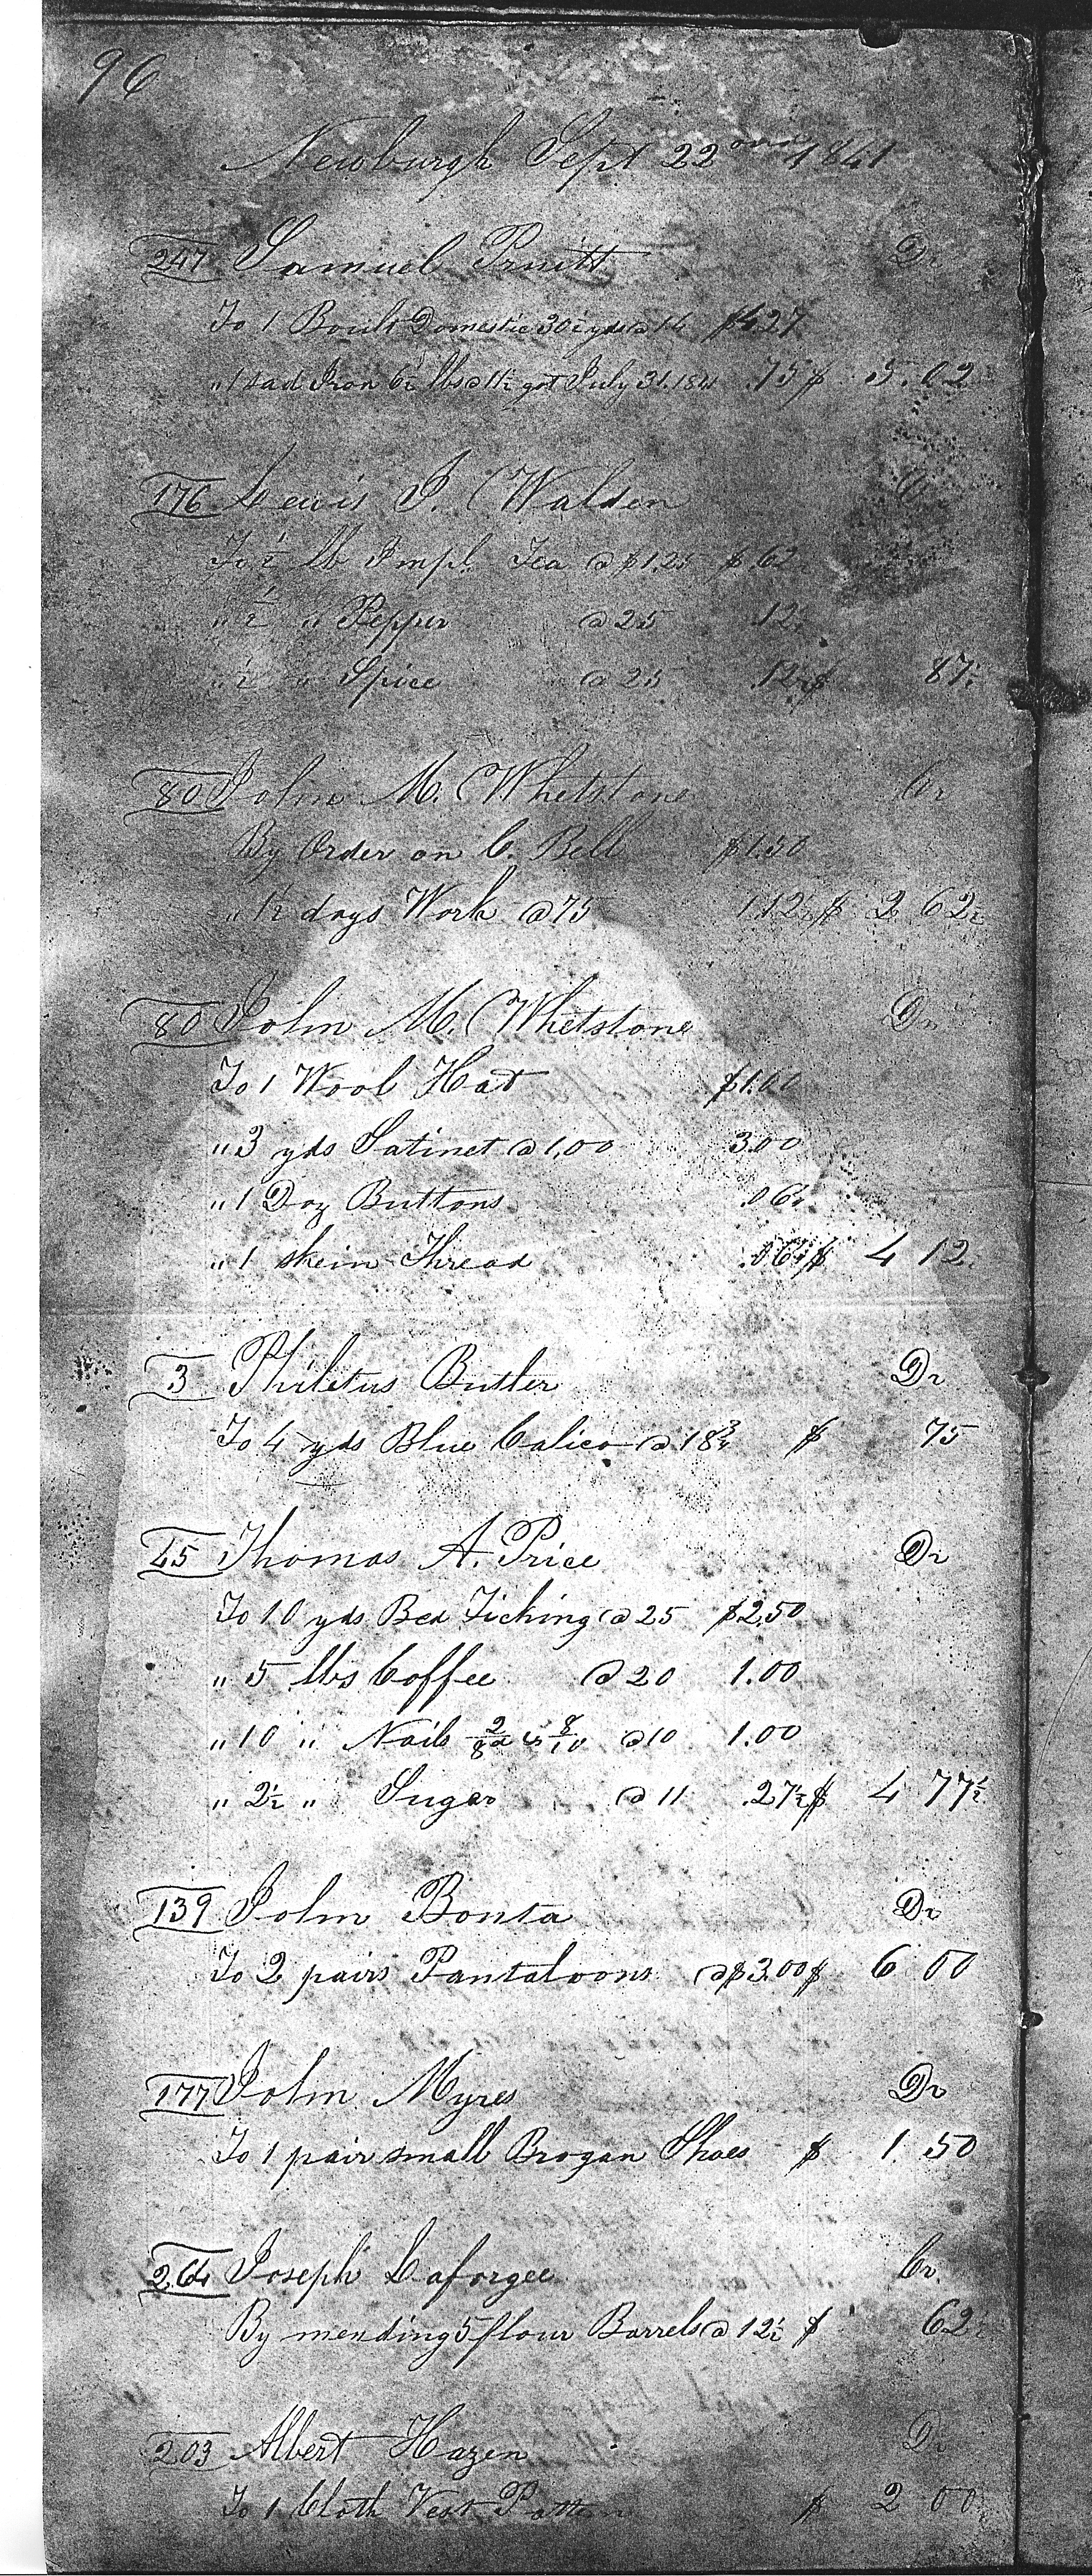 96
Newburgh Sept 22ond 1841
247 Samuel Pruitt Dr
To 1 Boult Domestic 30½ yds @ 14 $4.27
" 1 Sad Iron 6½ lbs @ 11½ got July 31. 1841 .75 $ 5.02
176 Lewis J. Walden Dr
To ½ lb Impl. Tea @ $1.25 $.62½
" ½ " Pepper @ 25 .12½
" ½ " Spice @ 25 .12½ $ 87½
80 John M. Whetstone Cr
By Order on C. Bell $1.50
" 1½ days Work @ 75 1.12½ $ 2 62½
80 John M. Whetstone Dr
To 1 Wool Hat $1.00
" 3 yds Satinet @ 1,00 3.00
" 1 Doz Buttons .06¼
" 1 skein Thread .06¼ $ 4 12.
3 Philetus Butler Dr
To 4 yds Blue Calico @ 18¾ $ 75
25 Thomas A. Price Dr
To 10 yds Bed Ticking @ 25 $2.50
" 5 lbs Coffee @ 20 1.00
" 10 " Nails 2/8d & 8/10 @ 10 1.00
" 2½ " Sugar @ 11 .27½ $ 4 77½
139 John Bonta Dr
To 2 pairs Pantaloons @ $3.00 $ 6 00
177 John Myres Dr
To 1 pair small Brogan Shoes $ 1 50
264 Joseph Laforgee Cr.
By mending 5 flour Barrels @ 12½ $ 62½
203 Albert Hazen Dr
To 1 Cloth Vest Pattern $ 2 00